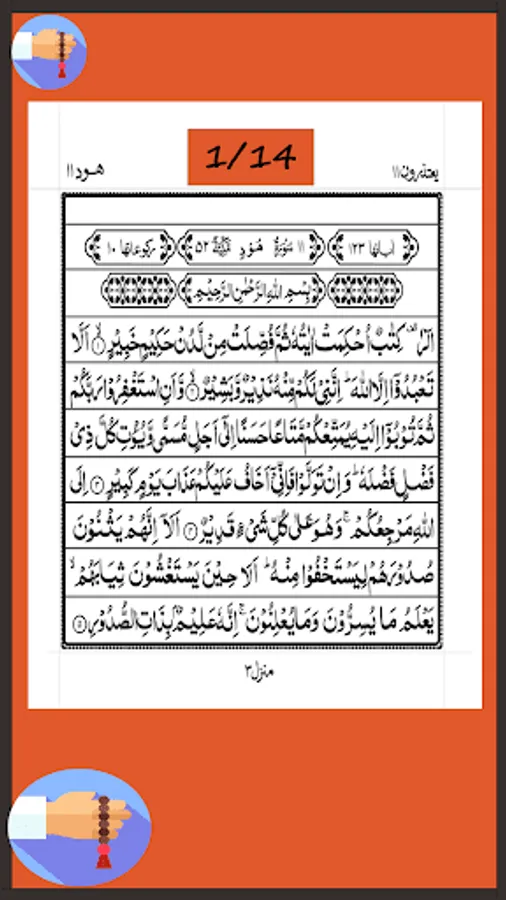 1/14
يعتذرون ١١
هود ١١
اٰیاتها ١٢٣
١١ سُوْرَةُ هُوْدٍ مَكِّيَّةٌ ٥٢
ركوعاتها ١٠
بِسْمِ اللّٰهِ الرَّحْمٰنِ الرَّحِيْمِ
الٓرٰ كِتٰبٌ اُحْكِمَتْ اٰيٰتُهٗ ثُمَّ فُصِّلَتْ مِنْ لَّدُنْ حَكِيْمٍ خَبِيْرٍ ١ اَلَّا
تَعْبُدُوْٓا اِلَّا اللّٰهَ ؕ اِنَّنِيْ لَكُمْ مِّنْهُ نَذِيْرٌ وَّبَشِيْرٌ ٢ وَّاَنِ اسْتَغْفِرُوْا رَبَّكُمْ
ثُمَّ تُوْبُوْٓا اِلَيْهِ يُمَتِّعْكُمْ مَّتَاعًا حَسَنًا اِلٰٓى اَجَلٍ مُّسَمًّى وَّيُؤْتِ كُلَّ ذِيْ
فَضْلٍ فَضْلَهٗ ؕ وَاِنْ تَوَلَّوْا فَاِنِّيْٓ اَخَافُ عَلَيْكُمْ عَذَابَ يَوْمٍ كَبِيْرٍ ٣ اِلَى
اللّٰهِ مَرْجِعُكُمْ ۚ وَهُوَ عَلٰى كُلِّ شَيْءٍ قَدِيْرٌ ٤ اَلَآ اِنَّهُمْ يَثْنُوْنَ
صُدُوْرَهُمْ لِيَسْتَخْفُوْا مِنْهُ ؕ اَلَا حِيْنَ يَسْتَغْشُوْنَ ثِيَابَهُمْ ۙ
يَعْلَمُ مَا يُسِرُّوْنَ وَمَا يُعْلِنُوْنَ ۚ اِنَّهٗ عَلِيْمٌۢ بِذَاتِ الصُّدُوْرِ ٥
منزل ٣